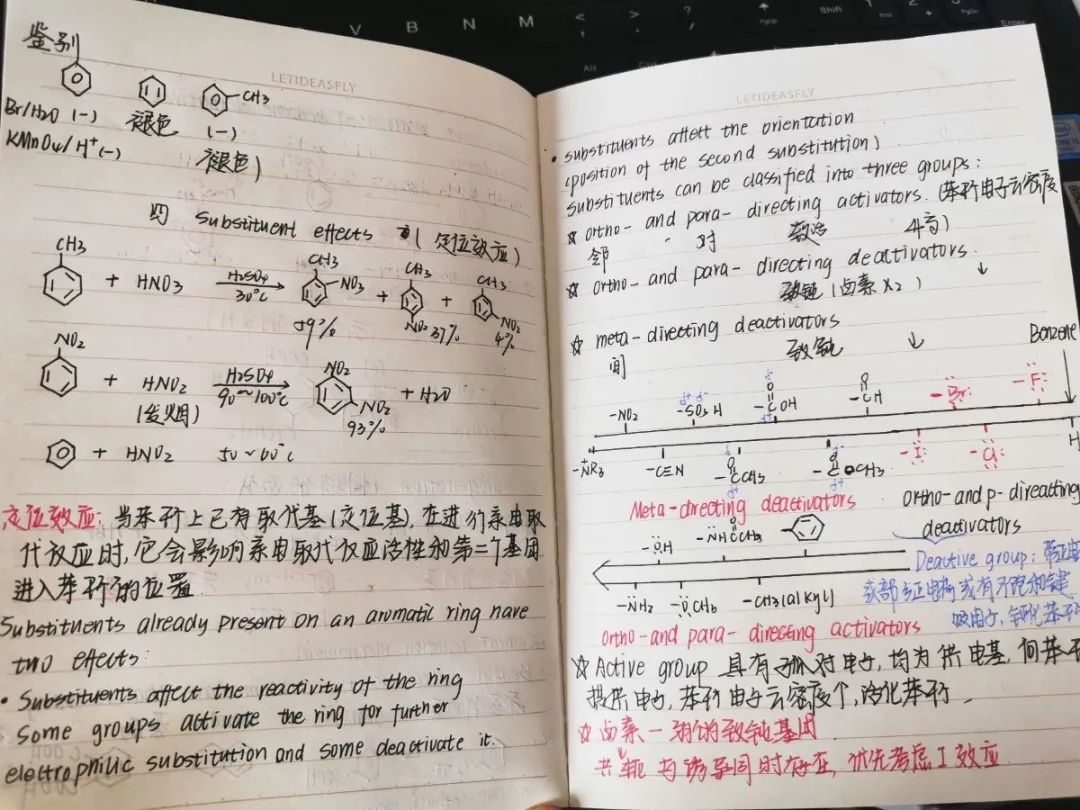 V B N M < >
PgUp Shift End Enter
Alt Ctrl PgDn
intel
LETIDEASFLY
鉴别
CH3
Br/H2O (-) 褪色 (-)
KMnO4/H+(-) 褪色)
四 Substituent effects (定位效应)
CH3 + HNO3 H2SO4 30°C CH3 NO2 + CH3 NO2 + CH3 NO2
59% 37% 4%
NO2 + HNO2 H2SO4 90~100°C NO2 NO2 + H2O
(发烟) 93%
+ HNO2 50~60°C
定位效应: 当苯环上已有取代基(定位基), 在进行亲电取
代反应时, 它会影响亲电取代反应活性和第二个基团
进入苯环的位置
Substituents already present on an aromatic ring have
two effects:
• Substituents affect the reactivity of the ring
Some groups activate the ring for further
electrophilic substitution and some deactivate it.
LETIDEASFLY
• substituents affect the orientation
(position of the second substitution)
substituents can be classified into three groups:
☆ ortho- and para-directing activators. (苯环电子云密度
邻 对 致活 升高)
☆ ortho-and para-directing deactivators. ↓
致钝(卤素 X2)
☆ meta-directing deactivators ↓
间 致钝
Benzene
-NO2 -SO3H -COH -CH -Br: -F:
-NR3 -C≡N -CCH3 -COCH3 -I: -Cl: H
Meta-directing deactivators
ortho-and p-direacting
deactivators
-OH -NHCCH3
-NH2 -OCH3 -CH3(alkyl)
Deactive group: 带正电
或部分正电荷或有不饱和键
吸电子, 钝化苯环
ortho-and para-directing activators
☆ Active group 具有孤对电子, 均为供电基, 向苯环
提供电子, 苯环电子云密度↑, 活化苯环.
☆ 卤素-弱的致钝基团
共轭与诱导同时存在, 优先考虑 I 效应